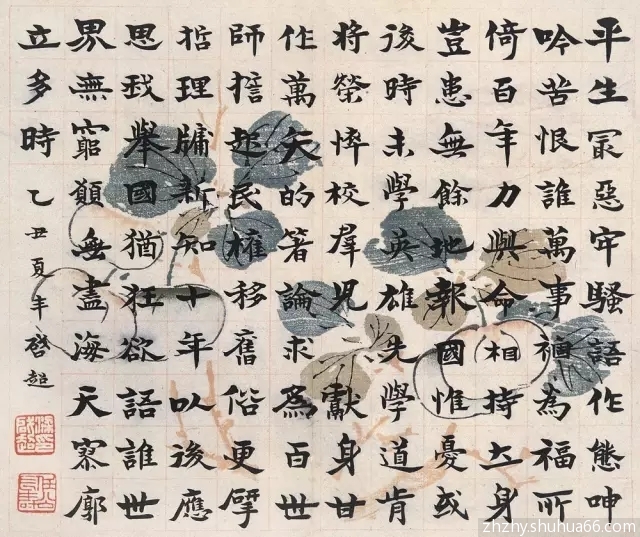 平生冣惡牢騷語作態呻
吟苦恨誰萬事禍為福所
倚百年力與命相持立身
豈患無餘地報國惟憂或
後時未學英雄先學道肯
將榮悴校羣兒獻身甘
作萬矢的著論求為百世
師誓起民權移舊俗更揅
哲理牖新知十年以後應
思我舉國猶狂欲語誰世
界無窮願無盡海天寥廓
立多時 乙丑夏啓超
zhzhy.shuhua66.com